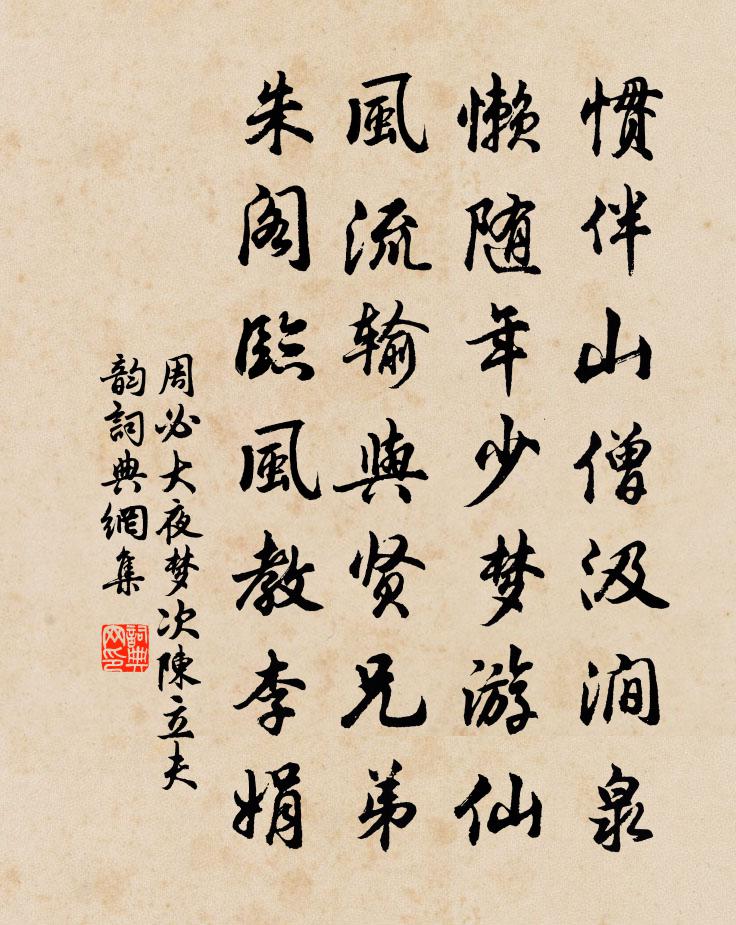 惯伴山僧汲涧泉
懒随年少梦游仙
風流输與贤兄弟
朱阁臨風教李娟
周必大夜梦次陳立夫
韵詞典網集
詞典網印